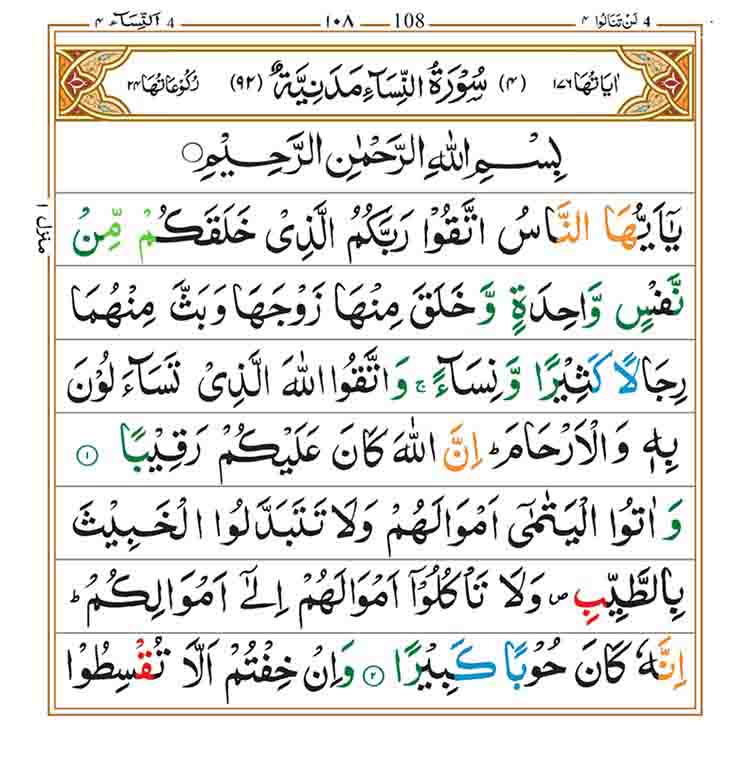 لَنْ تَنَالُوا ٤ 4 108 ١٠٨ 4 اَلنِّسَآء ٤
اٰیَاتُهَا ١٧٦ (٤) سُوْرَةُ النِّسَآءِ مَدَنِیَّةٌ (٩٢) رُكُوْعَاتُهَا ٢٤
بِسْمِ اللّٰهِ الرَّحْمٰنِ الرَّحِیْمِ ○
یٰۤاَیُّهَا النَّاسُ اتَّقُوْا رَبَّكُمُ الَّذِیْ خَلَقَكُمْ مِّنْ
نَّفْسٍ وَّاحِدَةٍ وَّ خَلَقَ مِنْهَا زَوْجَهَا وَ بَثَّ مِنْهُمَا
رِجَالًا كَثِیْرًا وَّ نِسَآءً ۚ وَ اتَّقُوا اللّٰهَ الَّذِیْ تَسَآءَلُوْنَ
بِهٖ وَ الْاَرْحَامَ ؕ اِنَّ اللّٰهَ كَانَ عَلَیْكُمْ رَقِیْبًا ١
وَ اٰتُوا الْیَتٰمٰۤی اَمْوَالَهُمْ وَ لَا تَتَبَدَّلُوا الْخَبِیْثَ
بِالطَّیِّبِ ۪ وَ لَا تَاْكُلُوْۤا اَمْوَالَهُمْ اِلٰۤی اَمْوَالِكُمْ ؕ
اِنَّهٗ كَانَ حُوْبًا كَبِیْرًا ٢ وَ اِنْ خِفْتُمْ اَلَّا تُقْسِطُوْا
منزل ١